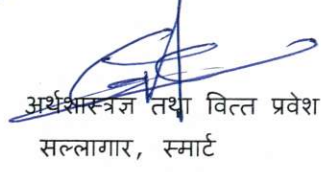 अर्थशास्त्रज्ञ तथा वित्त प्रवेश
सल्लागार, स्मार्ट